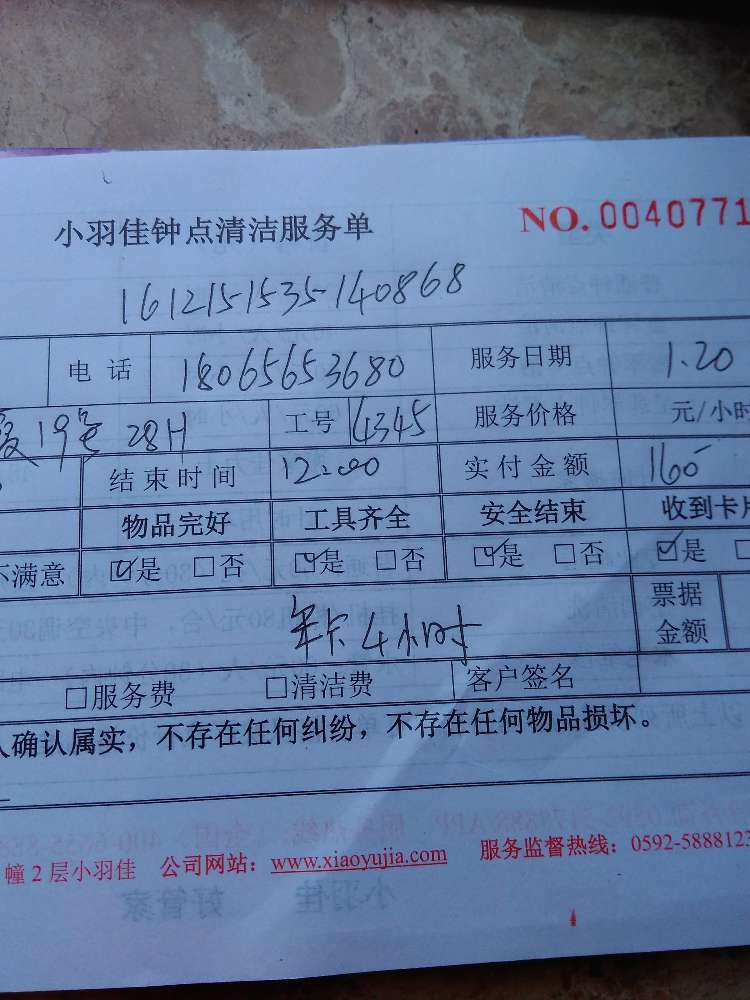 小羽佳钟点清洁服务单 NO. 0040771
1612151535140868
电话 18065653680 服务日期 1.20
19号 28H 工号 4345 服务价格 元/小时
结束时间 12:00 实付金额 160
物品完好 工具齐全 安全结束 收到卡片
不满意 ☑是 □否 ☑是 □否 ☑是 □否 ☑是
卡4小时 票据金额
□服务费 □清洁费 客户签名
人确认属实，不存在任何纠纷，不存在任何物品损坏。
幢2层小羽佳 公司网站：www.xiaoyujia.com 服务监督热线：0592-5888123